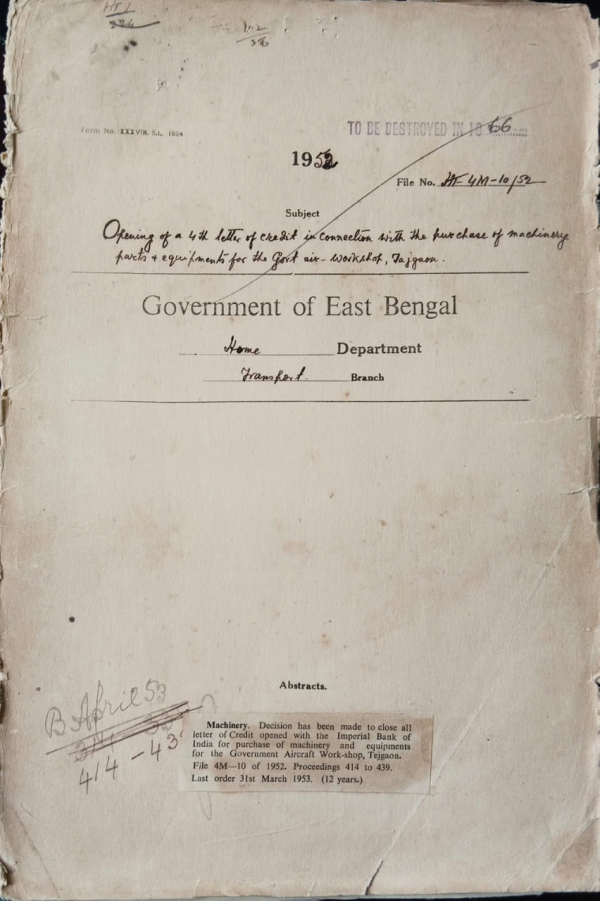 HF 1
Form No. XXXVIII. S.L. 1924
TO BE DESTROYED IN 1966
1952
File No. HF 4M-10/52
Subject
Opening of a 4th letter of credit in connection with the purchase of machinery
parts & equipments for the Govt air-workshop, Tejgaon.
Government of East Bengal
Home Department
Transport. Branch
Abstracts.
B April 53
414-43
Machinery. Decision has been made to close all
letter of Credit opened with the Imperial Bank of
India for purchase of machinery and equipments
for the Government Aircraft Work-shop, Tejgaon.
File 4M—10 of 1952. Proceedings 414 to 439.
Last order 31st March 1953. (12 years.)